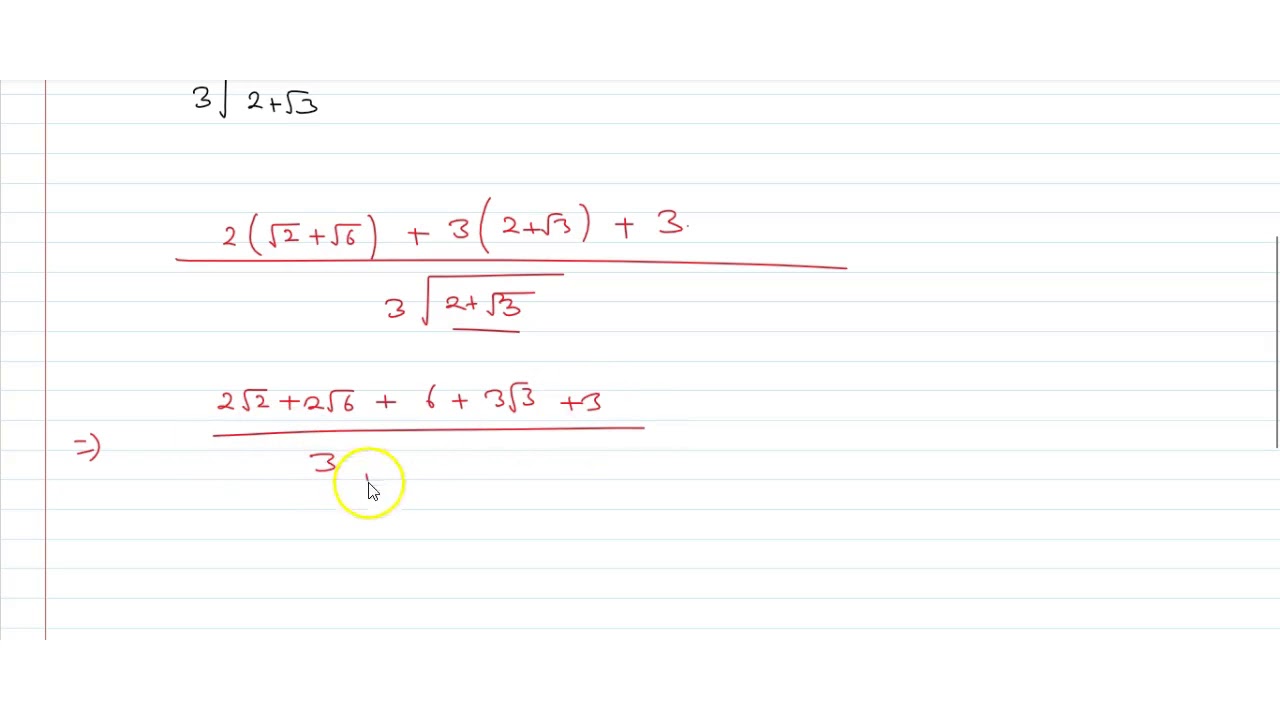 3√2+√3
2(√2+√6) + 3(2+√3) + 3.
3√2+√3
2√2+2√6+ 6+ 3√3 +3
=>
3